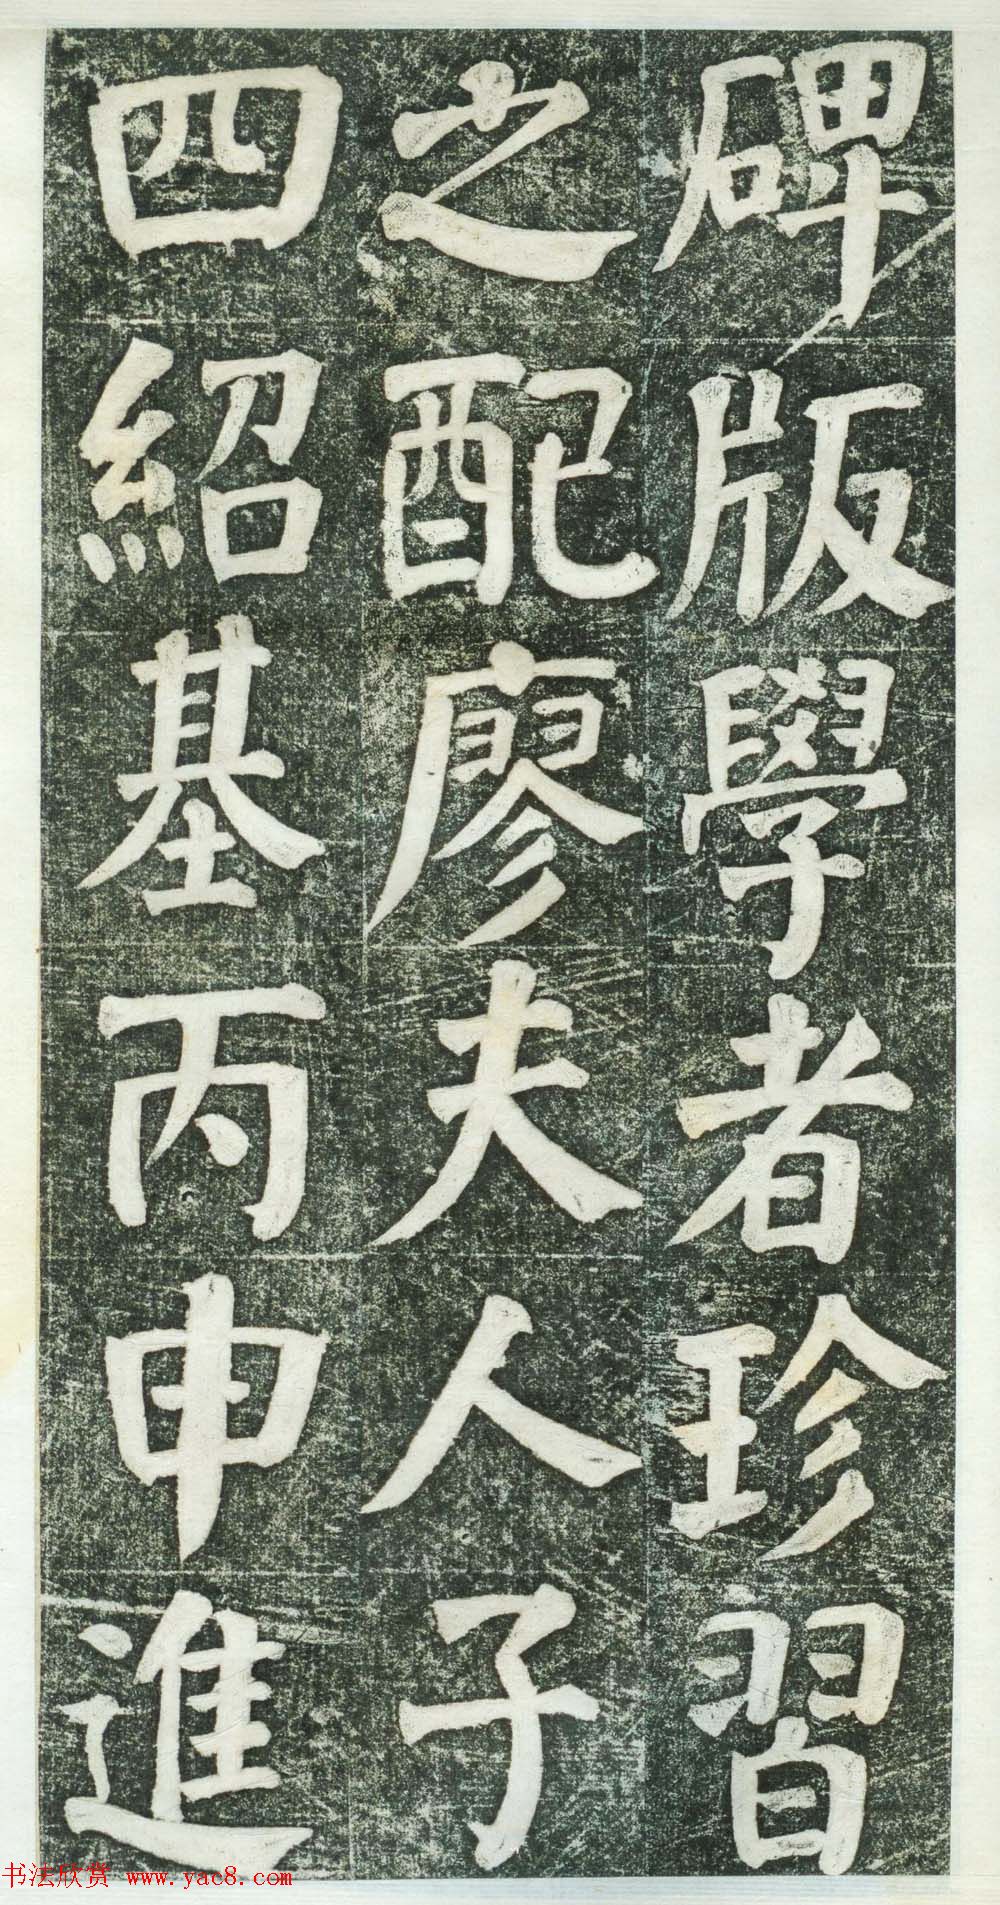 碑版學者珍習
之配廖夫人子
四紹基丙申進
书法欣赏 www.yac8.com